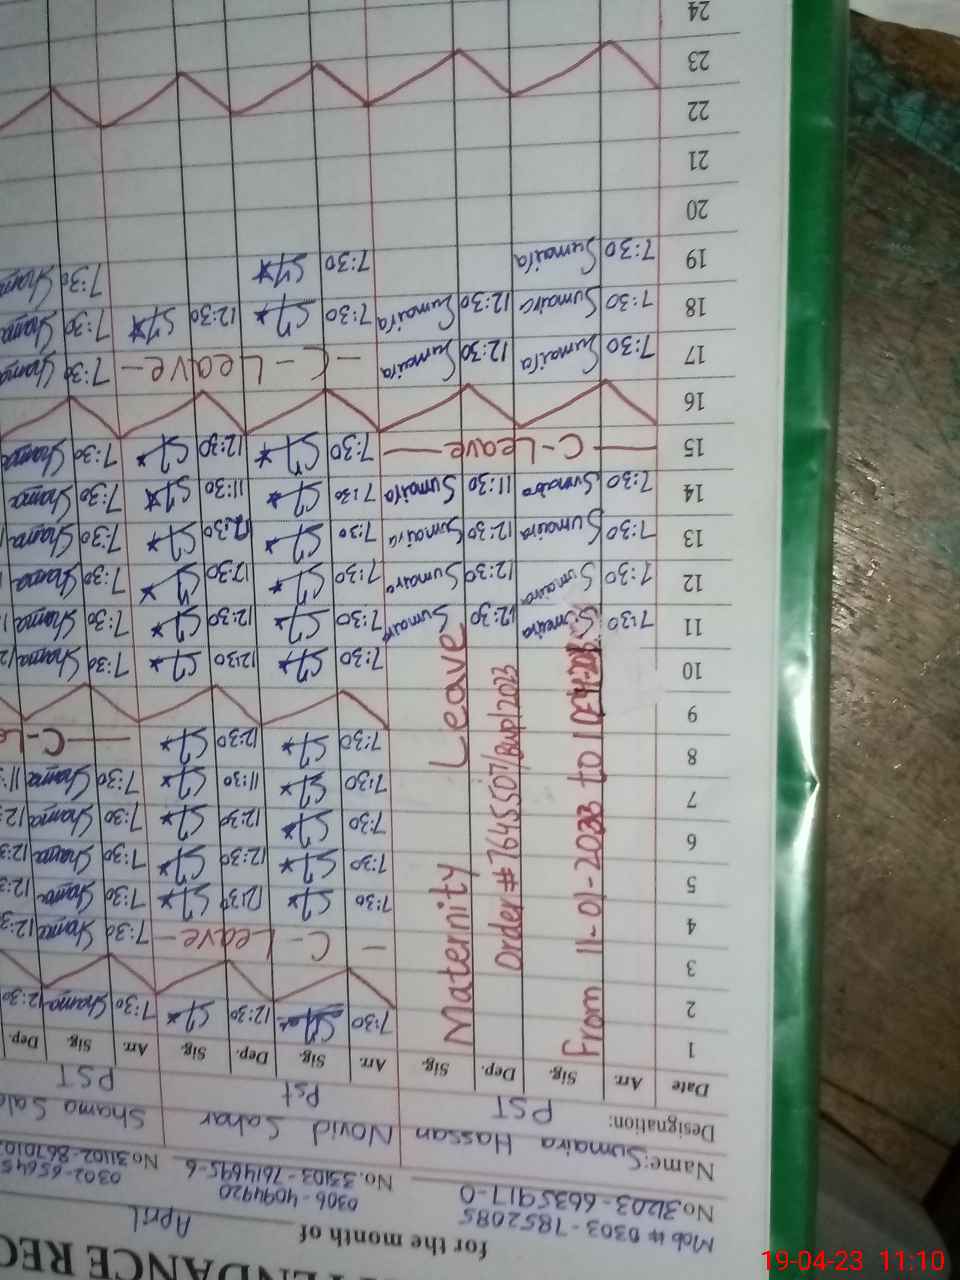 TENDANCE REC
for the month of April
Mob # 0303-7852085 0306-4094920 0302-65645
No.31203-6635917-0 No.35103-7614695-6 No 31102-867010
Name: Sumaira Hassan Novid Sahar Shama
Designation: PST Pst PST
Date Arr. Sig. Dep. Sig. Arr. Sig. Dep. Sig. Arr. Sig. Dep.
1 7:30 12:30 7:30 Shama 12:30
2
3 - C - Leave - 7:30 Shama 12:3
4 7:30 12:30 7:30 Shama 12:3
5 7:30 12:30 7:30 Shama 12:3
6 7:30 12:30 7:30 Shama 12:
7 7:30 11:30 7:30 Shama 11:3
8 7:30 12:30 C- Le
9
Maternity Leave
Order # 7645507/Bwp/2023
From 11-01-2023 to 10-4-2023
10 7:30 12:30 7:30 Shama
11 7:30 Sumaira 12:30 Sumaira 7:30 12:30 7:30 Shama
12 7:30 Sumaira 12:30 Sumaira 7:30 12:30 7:30 Shama
13 7:30 Sumaira 12:30 Sumaira 7:30 12:30 7:30 Shama
14 7:30 Sumaira 11:30 Sumaira 7:30 11:30 7:30 Shama
15 C-Leave 7:30 12:30 7:30 Shama
16
17 7:30 Sumaira 12:30 Sumaira - C - Leave - 7:30 Shama
18 7:30 Sumaira 12:30 Sumaira 7:30 12:30 7:30 Shama
19 7:30 Sumaira 7:30 7:30 Shama
20
21
22
23
24
19-04-23 11:10